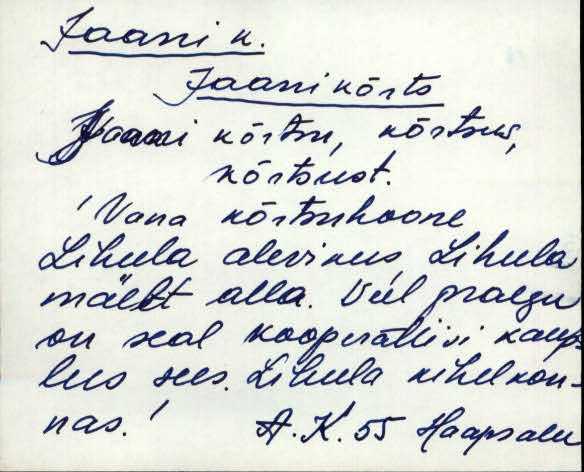 Jaani k.
Jaani kõrts
Jaani kõrtsu, kõrtsus,
kõrtsust.
'Vana kõrtsuhoone
Lihula alevikus, Lihula
mäelt alla. Veel praegu
on seal kooperatiivi kaup-
lus sees. Lihula kihelkon-
nas.'
A. K. 55 Haapsalu